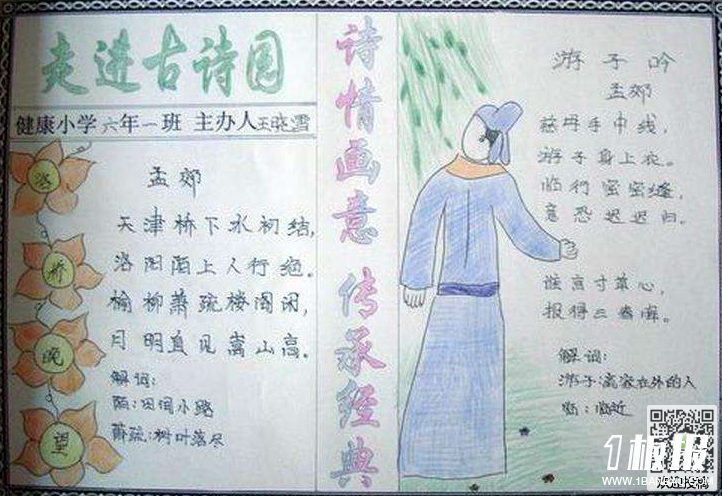 走进古诗园
健康小学六年一班 主办人王晓雪
洛
桥
晚
望
孟郊
天津桥下水初结,
洛阳陌上人行绝。
榆柳萧疏楼阁闲,
月明直见嵩山高。
解词:
陌:田间小路
萧疏:树叶落尽
诗情画意 传承经典
游子吟
孟郊
慈母手中线,
游子身上衣。
临行密密缝,
意恐迟迟归。
谁言寸草心,
报得三春晖。
解词:
游子:离家在外的人
临:临近
1板报